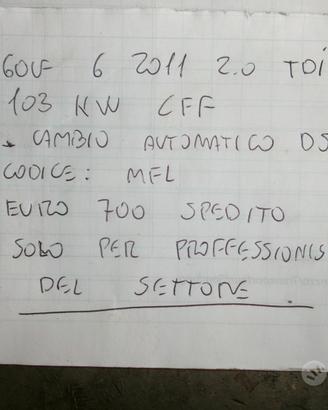 GOLF 6 2011 2.0 TDI
103 KW CFF
CAMBIO AUTOMATICO DS
CODICE: MFL
EURO 700 SPEDITO
SOLO PER PROFFESSIONIS
DEL SETTORE.